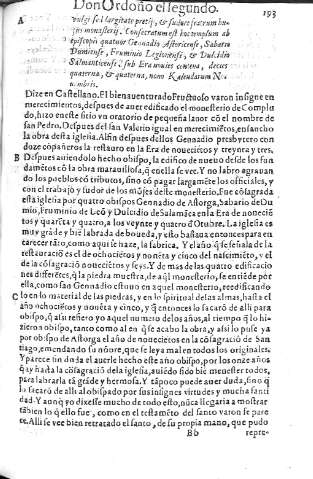 Don Ordoño el segundo.
193
A
vulgi sed largitate pretij, & sudore fratrum hu-
ius monasterij. Consecratum est hoc templum ab
episcopis quatuor Gennadio Astoricense, Sabario
Dumiense, Fruminio Legionense, & Dulcidio
Salmanticense: sub Era nouies centena, decies
quaterna, & quaterna, nono Kalendarum No
uembris.
Dize en Castellano. El bienauenturado Frutuoso varon insigne en
merecimientos, despues de auer edificado el monesterio de Complu
do, hizo en este sitio vn oratorio de pequeña lauor cõ el nombre de
san Pedro. Despues del san Valerio igual en merecimiẽtos, ensancho
la obra desta iglesia. Al fin despues dellos Gennadio presbytero con
doze cõpañeros la restauro en la Era de nouecietos y treynta y tres.
B Despues auiendolo hecho obispo, la edifico de nueuo desde los fun
damẽtos cõ la obra marauillosa, q̃ en ella se vee. Y no labro agrauan
do los pueblos cõ tributos, sino cõ pagar largamẽte los officiales, y
con el trabajo y sudor de los mõjes deste monesterio. Fue cõsagrada
esta iglesia por quatro obispos Gennadio de Astorga, Sabario de Du
mio, Fruminio de Leõ y Dulcidio de Salamãca en la Era de nouecie
tos y quarẽta y quatro, a los veynte y quatro d'Otubre. La iglesia es
muy grãde y biẽ labrada de boueda, y esto bastaua entonces para en
carecer tãto, como aqui se haze, la fabrica. Y el año q̃ se señala de la
restauraciõ es el de ochocietos y nouẽta y cinco del nascimiẽto, y el
de la cõsagraciõ nouecietos y seys. Y de mas de las quatro edificacio
nes differẽtes, q̃ la piedra muestra, de aq̃l monesterio, se entiẽde por
ella, como san Gennadio estuuo en aquel monesterio, reedificando
C lo en lo material de las piedras, y en lo spiritual de las almas, hasta el
año ochocietos y nouẽta y cinco, y q̃ entonces lo sacarõ de alli para
obispo, q̃ assi refiero yo aquel numero de los años, al tiempo q̃ lo hi-
zieron obispo, tanto como al en q̃ se acabo la obra, y assi lo puse ya
por obispo de Astorga el año de nouecietos en la cõsagraciõ de San
tiago, emendando su nõbre, que se leya mal en todos los originales.
Y parece sin duda el auerle hecho este año obispo, por los onze años
q̃ ay hasta la cõsagraciõ dela iglesia, auiẽdo sido biẽ menester todos,
para labrarla tã grãde y hermosa. Y tãpoco puede auer duda, sino q̃
lo sacarõ de alli al obispado por sus insignes virtudes y mucha santi
dad. Y aunq̃ yo dixesse mucho de todo esto, nũca llegaria a mostrar
tãbien lo q̃ ello fue, como en el testamẽto del santo varon se pare
ce. Alli se vee bien retratado el santo, de su propia mano, que pudo
Bb
repre-